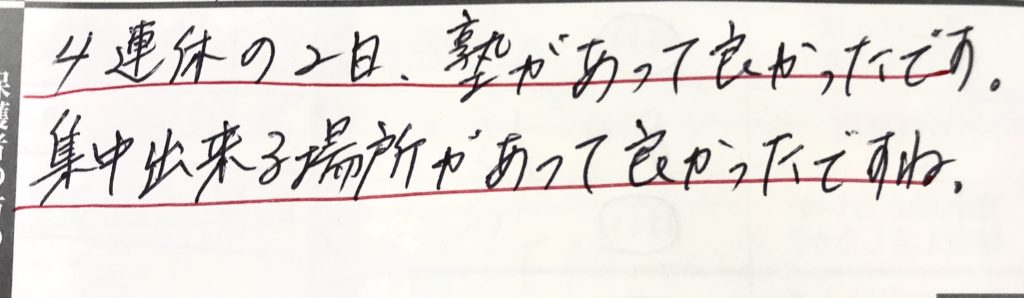 4連休の2日、塾があって良かったです。
集中出来る場所があって良かったですね。
保護者の方の